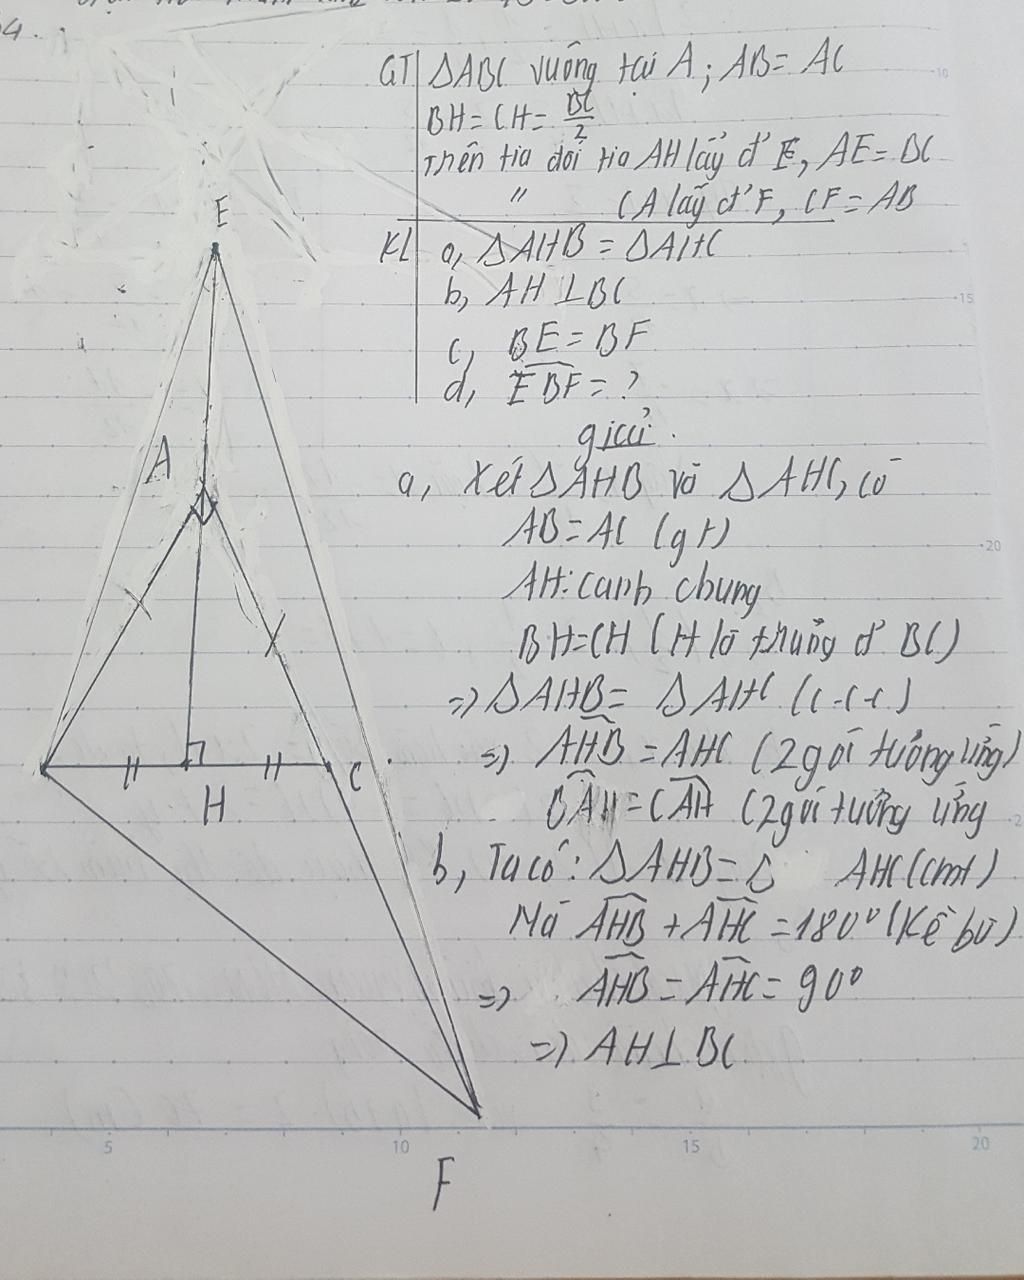 4.
GT ΔABC vuông tại A; AB = AC
BH = CH = BC/2
Trên tia đối tia AH lấy đ' E, AE = BC
" CA lấy đ' F, CF = AB
KL a, ΔAHB = ΔAHC
b, AH ⊥ BC
c, BE = BF
d, EBF = ?
giải.
E
A
a, Xét ΔAHB và ΔAHC, có
AB = AC (gt)
AH: cạnh chung
BH = CH (H là trung đ' BC)
=> ΔAHB = ΔAHC (c-c-c)
=> AHB = AHC (2 gói tương ứng)
BAH = CAH (2 gói tương ứng
H
C
b, Ta có: ΔAHB = Δ AHC (cmt)
Mà AHB + AHC = 180° (Kề bù)
=> AHB = AHC = 90°
=> AH ⊥ BC
F
5 10 15 20